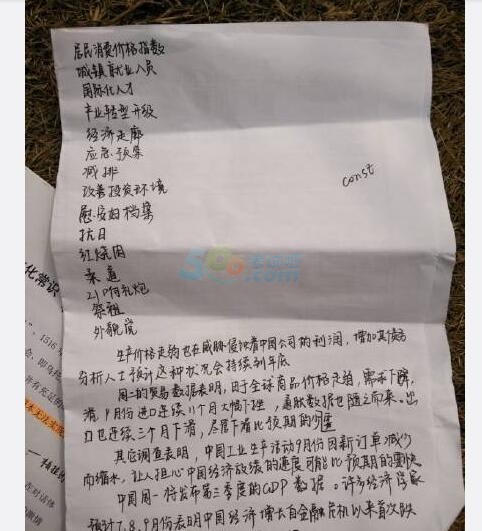 居民消费价格指数
城镇就业人员
国际化人才
产业转型升级
经济走廊
应急预案
减排
改善投资环境
慰安妇档案
抗日
红烧肉
味道
21响礼炮
祭祖
外貌党
const
生产价格走钩也在威胁侵蚀着中国公司的利润，增加其债务
分析人士预计这种状况会持续到年底
周一的贸易数据表明，因于全球商品价格走钩，需求下降
滑，9月份进口连续11个月大幅下挫，贡献数据也随之而来。出
口也连续三个月下滑，尽管下滑比预期的少
其它调查表明，中国工业生产活动9月份因新订单减少
而缩水，让人担心中国经济放缓的速度可能比预期的要快
中国周一将发布第三季度的GDP数据。许多经济学家
预计7、8、9月份表明中国经济增长自金融危机以来首次跌
化常识
1516年